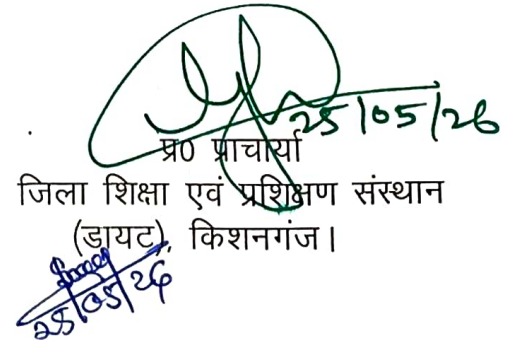 25/05/26
प्र0 प्राचार्या
जिला शिक्षा एवं प्रशिक्षण संस्थान
(डायट), किशनगंज।
25/05/26